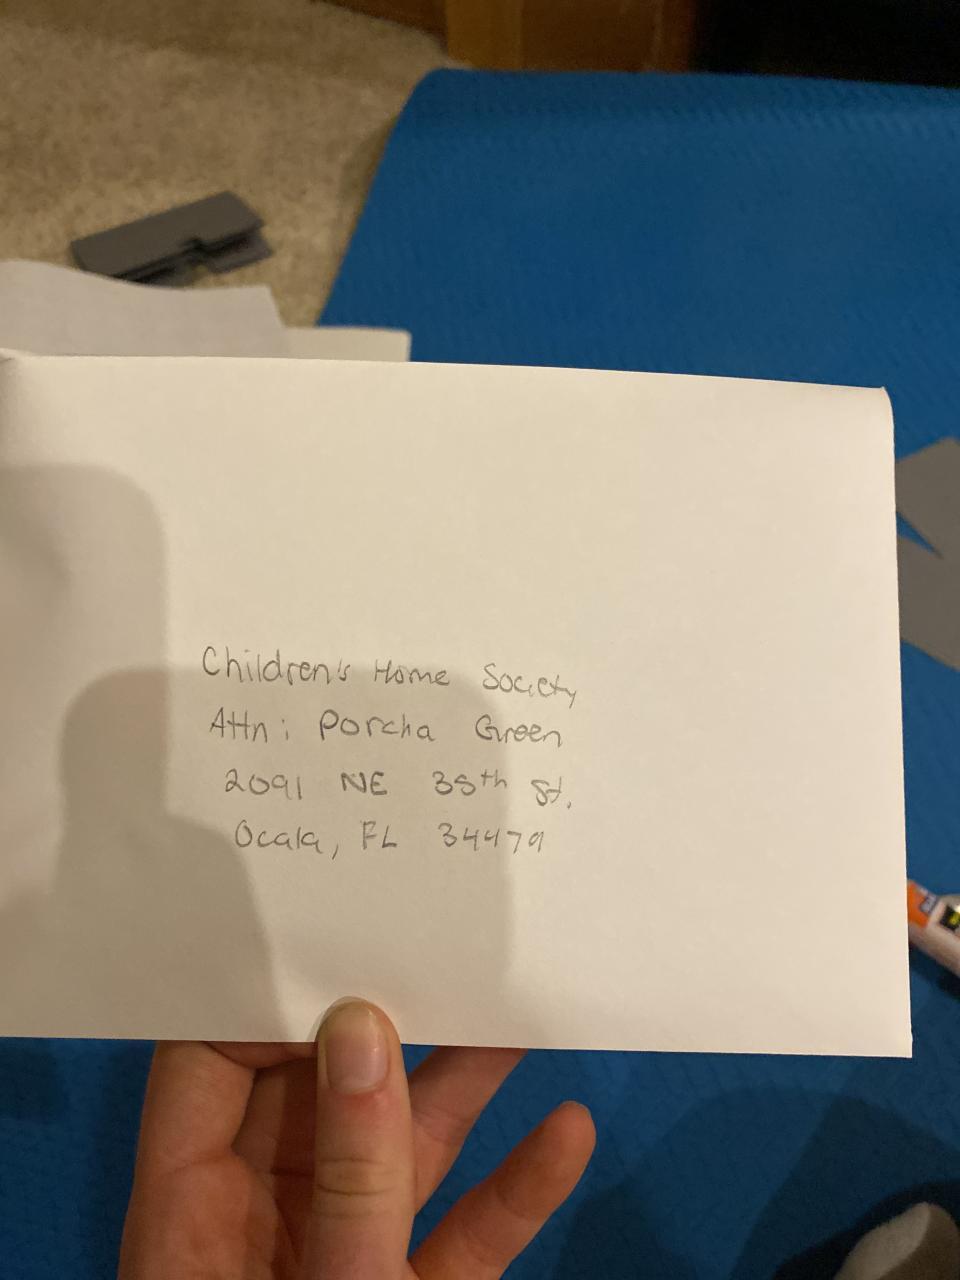 Children's Home Society
Attn: Porcha Green
2091 NE 35th St.
Ocala, FL 34479